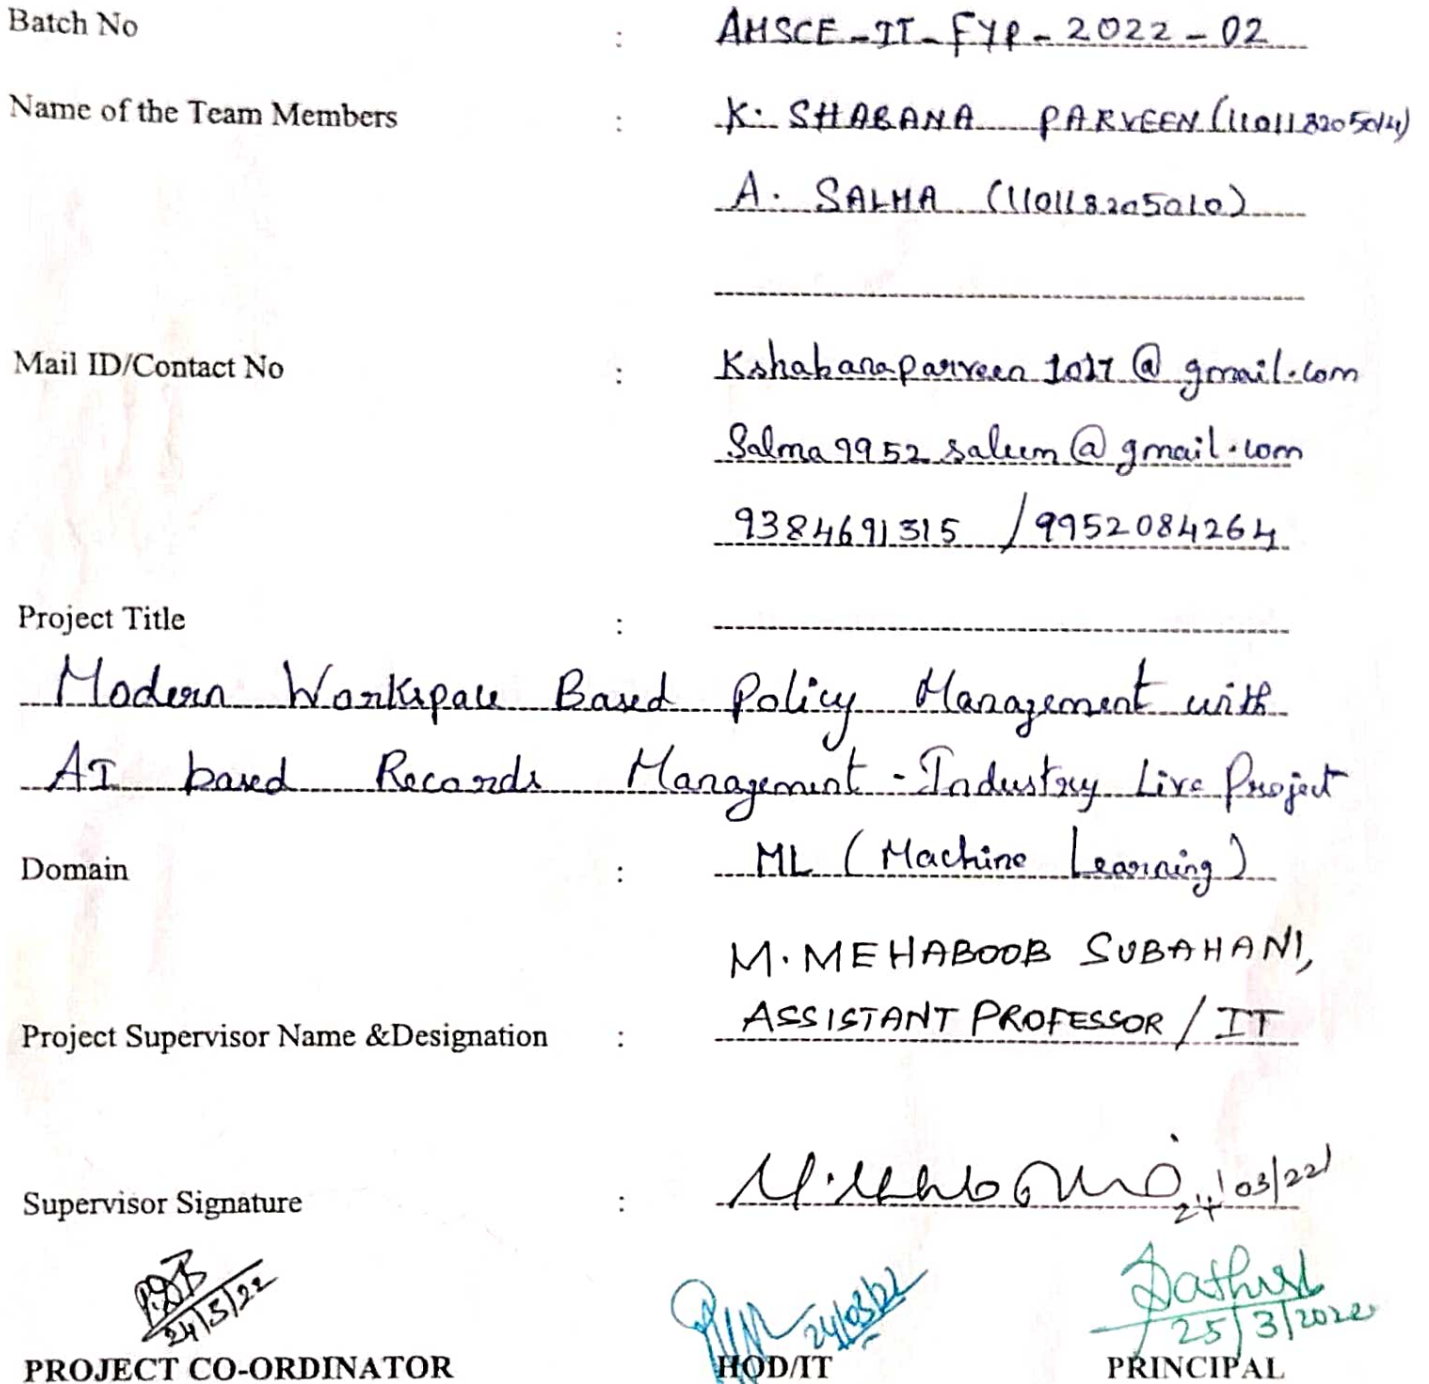 Batch No : AMSCE-IT-FYP-2022-02
Name of the Team Members : K. SHABANA PARVEEN (110118205014)
A. SALMA (110118205010)
Mail ID/Contact No : Kshabanaparveen1017@gmail.com
Salma9952saleem@gmail.com
9384691315 / 9952084264
Project Title :
Modern Workspace Based Policy Management with
AI based Records Management - Industry Live Project
Domain : ML (Machine Learning)
M. MEHABOOB SUBAHANI,
Project Supervisor Name &Designation : ASSISTANT PROFESSOR / IT
Supervisor Signature : 24/03/22
24/3/22 24/03/22 25/3/2022
PROJECT CO-ORDINATOR HOD/IT PRINCIPAL